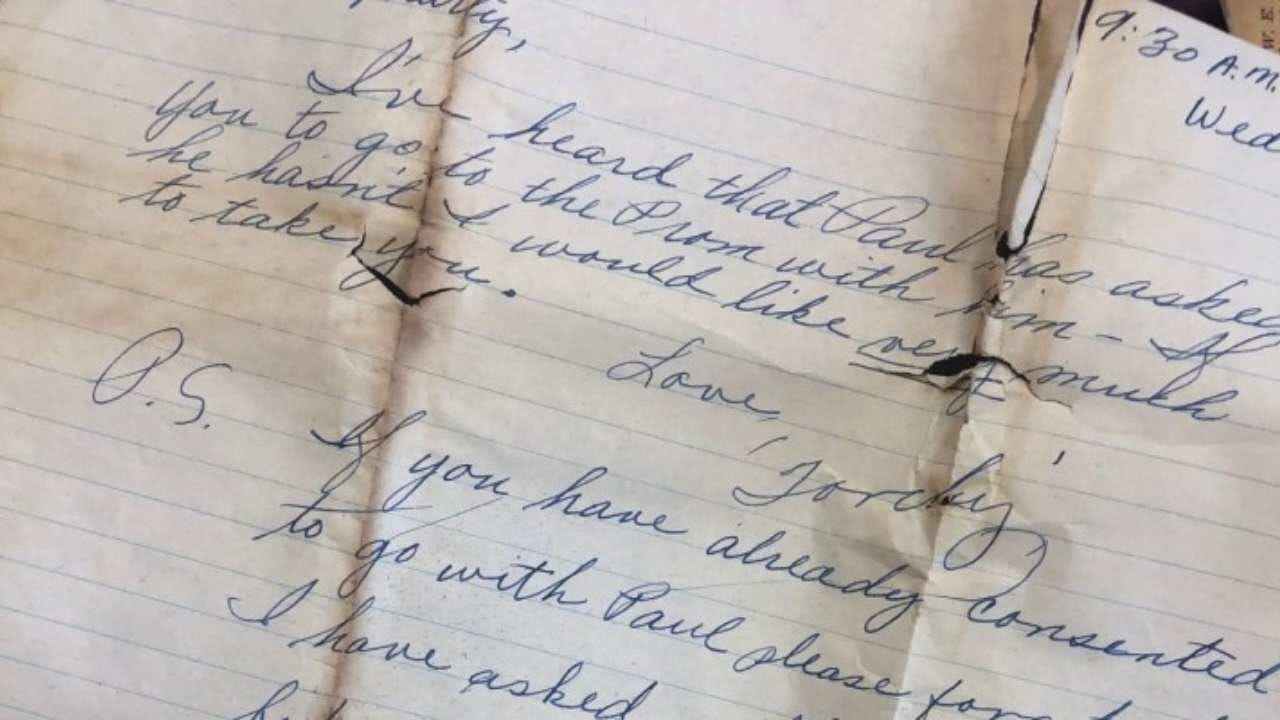 9:30 A.M.
Wed
I've heard that Paul has asked
you to go to the Prom with him - If
he hasn't I would like very much
to take you.
Love,
"Torchy"
P.S. If you have already consented
to go with Paul please
I have asked